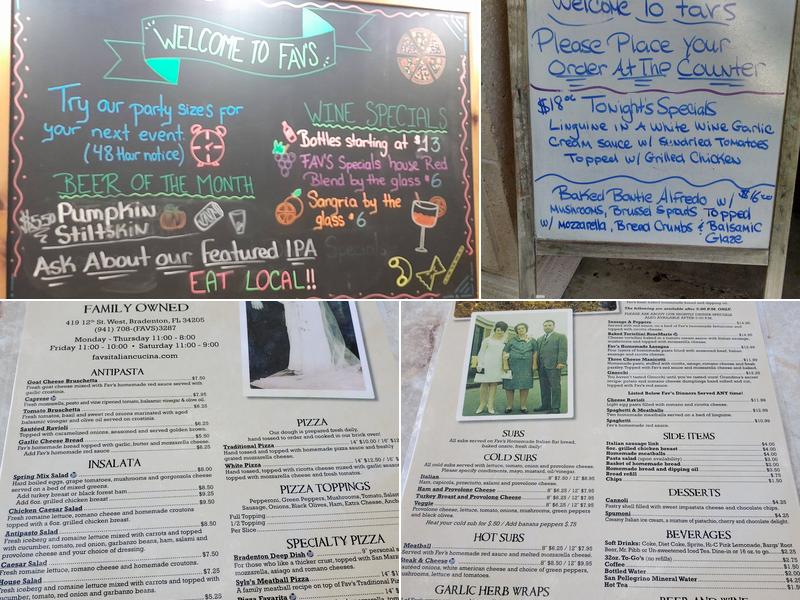 WELCOME TO FAV'S
Try our party sizes for
your next event.
(48 Hour notice)
BEER OF THE MONTH
$5.50 Pumpkin
Stiltskin
Ask About our Featured IPA
EAT LOCAL!!
WINE SPECIALS
Bottles starting at $13
FAV'S Specials house Red
Blend by the glass $6
Sangria by the
glass $6
Welcome To Fav's
Please Place Your
Order At The Counter
$18.00 Tonight's Specials
Linguine in A White Wine Garlic
Cream Sauce w/ Sundried Tomatoes
Topped w/ Grilled Chicken
Baked Bowtie Alfredo w/
Mushrooms, Brussel Sprouts, Topped
w/ Mozzarella, Bread Crumbs & Balsamic
Glaze
FAMILY OWNED
419 12th St. West, Bradenton, FL 34205
(941) 708-(FAVS)3287
Monday - Thursday 11:00 - 8:00
Friday 11:00 - 10:00 • Saturday 11:00 - 9:00
favsitaliancucina.com
ANTIPASTA
Goat Cheese Bruschetta $7.50
Fresh goat cheese mixed with Fav's homemade red sauce served with
garlic crostinis.
Caprese $6.95
Fresh mozzarella, pesto and vine ripened tomato, balsamic vinegar & olive oil.
Tomato Bruschetta $6.25
Fresh tomatoes, basil and sweet red onions marinated with aged
balsamic vinegar and olive oil served on crostinis.
Sautéed Ravioli $6.25
Topped with caramelized onions, seasoned and served golden brown.
Garlic Cheese Bread $5.50
Fav's homemade bread topped with garlic, butter and mozzarella cheese.
Add Fav's homemade red sauce $6.25
INSALATA
Spring Mix Salad $8.00
Hard boiled eggs, grape tomatoes, mushrooms and gorgonzola cheese
served on a bed of mixed greens.
Add turkey breast or black forest ham $8.50
Add 6oz. grilled chicken breast $9.25
Chicken Caesar Salad $9.50
Fresh romaine lettuce, romano cheese and homemade croutons
topped with a 6oz. grilled chicken breast.
Antipasto Salad $8.50
Fresh iceberg and romaine lettuce mixed with carrots and topped
with cucumber, tomato, red onion, garbanzo beans, ham, salami and
provolone cheese and your choice of dressing.
Caesar Salad $7.50
Fresh romaine lettuce, romano cheese and homemade croutons.
House Salad $7.25
Fresh iceberg and romaine lettuce mixed with carrots and topped with
cucumber, tomato, red onion, garbanzo beans
PIZZA
Our dough is prepared fresh daily,
hand tossed to order and cooked in our brick oven!
Traditional Pizza
Hand tossed and topped with homemade pizza sauce and
White Pizza
Hand tossed, topped with ricotta cheese mixed with garlic
mozzarella cheese and fresh tomatoes.
PIZZA TOPPINGS
Pepperoni, Green Peppers, Mushrooms, Tomato, Salami
Sausage, Onions, Black Olives, Ham, Extra Cheese,
Full Topping
1/2 Topping
Per Slice
SPECIALTY PIZZA
Bradenton Deep Dish 9" personal
For those who like a thicker crust, topped with San Marzano
mozzarella, asiago and romano cheeses.
Syl's Meatball Pizza
A family meatball recipe on top of Fav's Traditional
Pizza Favarita
SUBS
All subs served on Fav's Homemade Italian flat bread,
baked onsite, fresh daily!
COLD SUBS
All cold subs served with lettuce, tomato, onion and provolone cheese.
Please specify condiments, mayo, mustard, oil/vinegar.
Italian 8" $6.25 / 12" $7.95
Ham, capicola, prosciutto, salami and provolone cheese.
Ham and Provolone Cheese 8" $6.25 / 12" $7.95
Turkey Breast and Provolone Cheese 8" $6.25 / 12" $7.95
Veggie 8" $6.25 / 12" $7.95
Provolone cheese, lettuce, tomato, onions, mushrooms, green peppers
and black olives.
Heat your cold sub for $.50 / Add banana peppers $.75
HOT SUBS
Meatball 8" $6.25 / 12" $7.95
Served with Fav's homemade red sauce and melted mozzarella cheese.
Steak & Cheese 8" $8.50 / 12" $9.95
Sautéed onions, white american cheese and choice of green peppers,
mushrooms, lettuce and tomatoes.
GARLIC HERB WRAPS
The following are available after 5:00 P.M. ONLY.
Sausage & Peppers
Baked Tortellini RoseMarie
Fav's Homemade Lasagna
Three Cheese Manicotti
Gnocchi
Listed Below Fav's Dinners Served ANY time!
Cheese Ravioli $11.95
Light egg pasta filled with romano and ricotta cheese.
Spaghetti & Meatballs $12.95
Two homemade meatballs served on a bed of linguine.
Spaghetti $10.95
Fav's homemade red sauce.
SIDE ITEMS
Italian sausage link $4.00
5oz. grilled chicken $4.50
Homemade meatballs $4.00
Pasta salad (upon availability) $2.00
Basket of homemade bread $3.00
Homemade bread and dipping oil
Bread refill $.75
Chips $1.50
DESSERTS
Cannoli $4.25
Pastry shell filled with sweet impastata cheese and chocolate chips.
Spumoni $4.25
Creamy Italian ice cream, a mixture of pistachio, cherry and chocolate delight.
BEVERAGES
Soft Drinks: Coke, Diet Coke, Sprite, Hi-C Pink Lemonade, Barqs' Root
Beer, Mr. Pibb or Un-sweetened Iced Tea. Dine-in or 16 oz. to go $2.25
32oz. To-Go's (no refills) $2.75
Coffee $1.50
Bottled Water $2.00
San Pellegrino Mineral Water $4.25
Hot Tea
BEER AND WINE